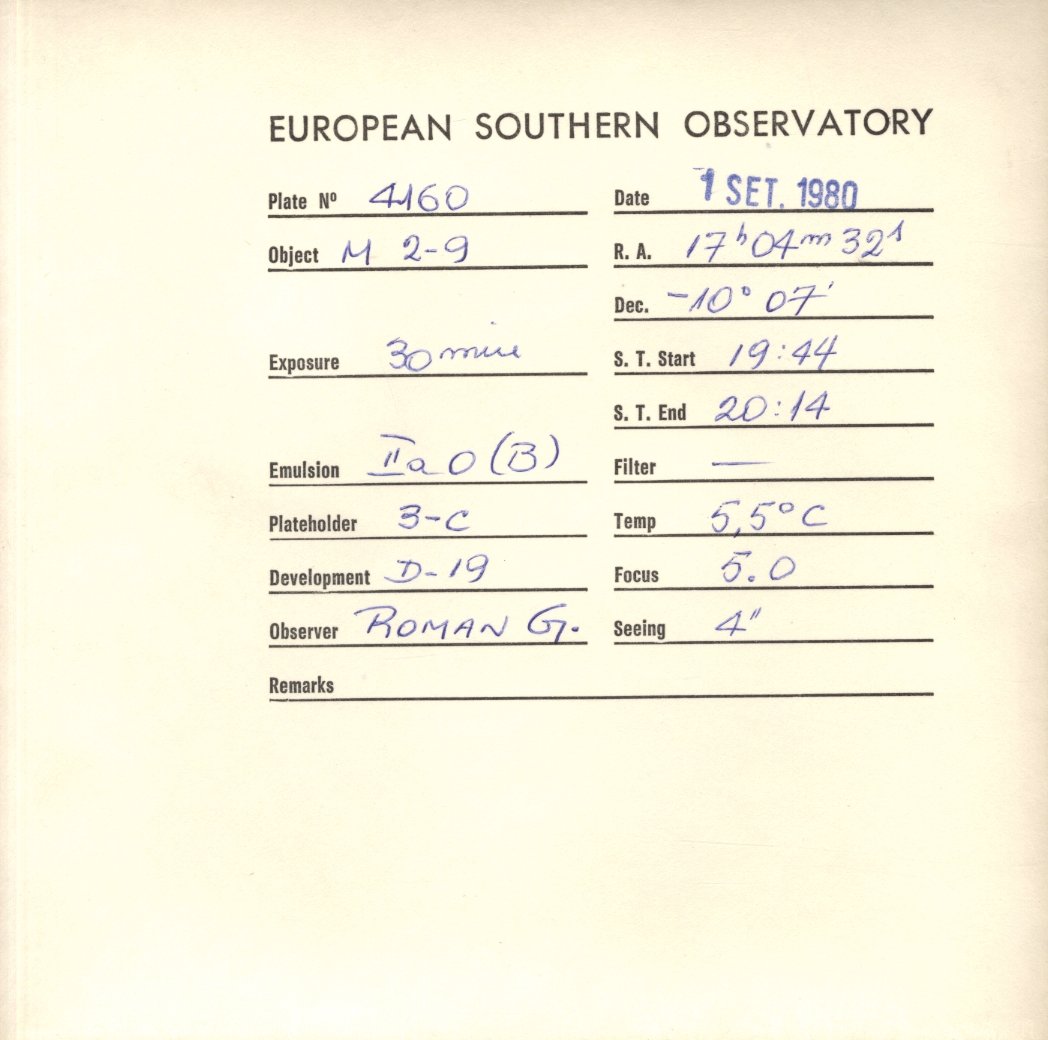 EUROPEAN SOUTHERN OBSERVATORY
Plate Nº 4160 Date 1 SET. 1980
Object M 2-9 R. A. 17h 04m 32s
Dec. -10° 07'
Exposure 30 min S. T. Start 19:44
S. T. End 20:14
Emulsion IIa O (B) Filter —
Plateholder 3-C Temp 5,5°C
Development D-19 Focus 5.0
Observer ROMAN G. Seeing 4"
Remarks